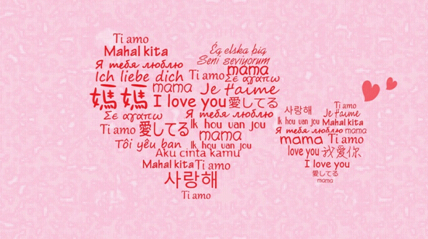 Ti amo
Ég elska þig
Mahal kita
Seni seviyorum
Я тебя люблю
mama
Ich liebe dich
Ti amo
Σε αγαπω
mama
Je t'aime
媽媽
I love you
愛してる
Σε αγαπω
Я тебя люблю
Ti amo
愛してる
Ik hou van jou
mama
Tôi yêu bạn
Ik hou van jou
Aku cinta kamu
Mahal kita
Ti amo
사랑해
Ti amo
사랑해
Ti amo
Je t'aime
Ik hou van jou
Mahal kita
Я тебя люблю
mama
mama
Ti amo
love you
我爱你
I love you
愛してる
mama